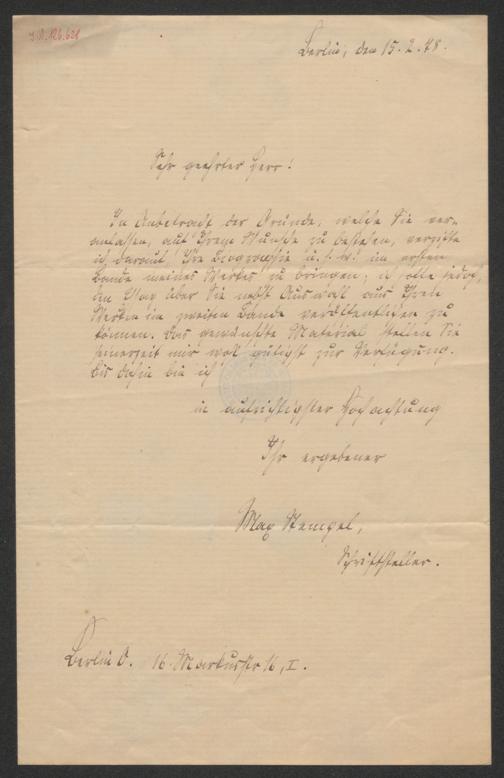 I.N. 126.621
Berlin, den 15.2.98.
Sehr geehrter Herr!
In Anbetracht der Gründe, welche Sie ver-
anlassen, auf Ihrem Wunsche zu bestehen, verzichte
ich darauf, Ihre Biographie u.s.w. im ersten
Bande meines Werkes zu bringen, ich hoffe jedoch,
ein Essay über Sie nebst Auswahl aus Ihren
Werken im zweiten Bande veröffentlichen zu
können. Das gewünschte Material stellen Sie
seinerzeit mir wohl gütigst zur Verfügung.
Bis dahin bin ich
in aufrichtigster Hochachtung
Ihr ergebener
Max Stempel,
Schriftsteller.
Berlin O. 16. Markusstr 16, I.